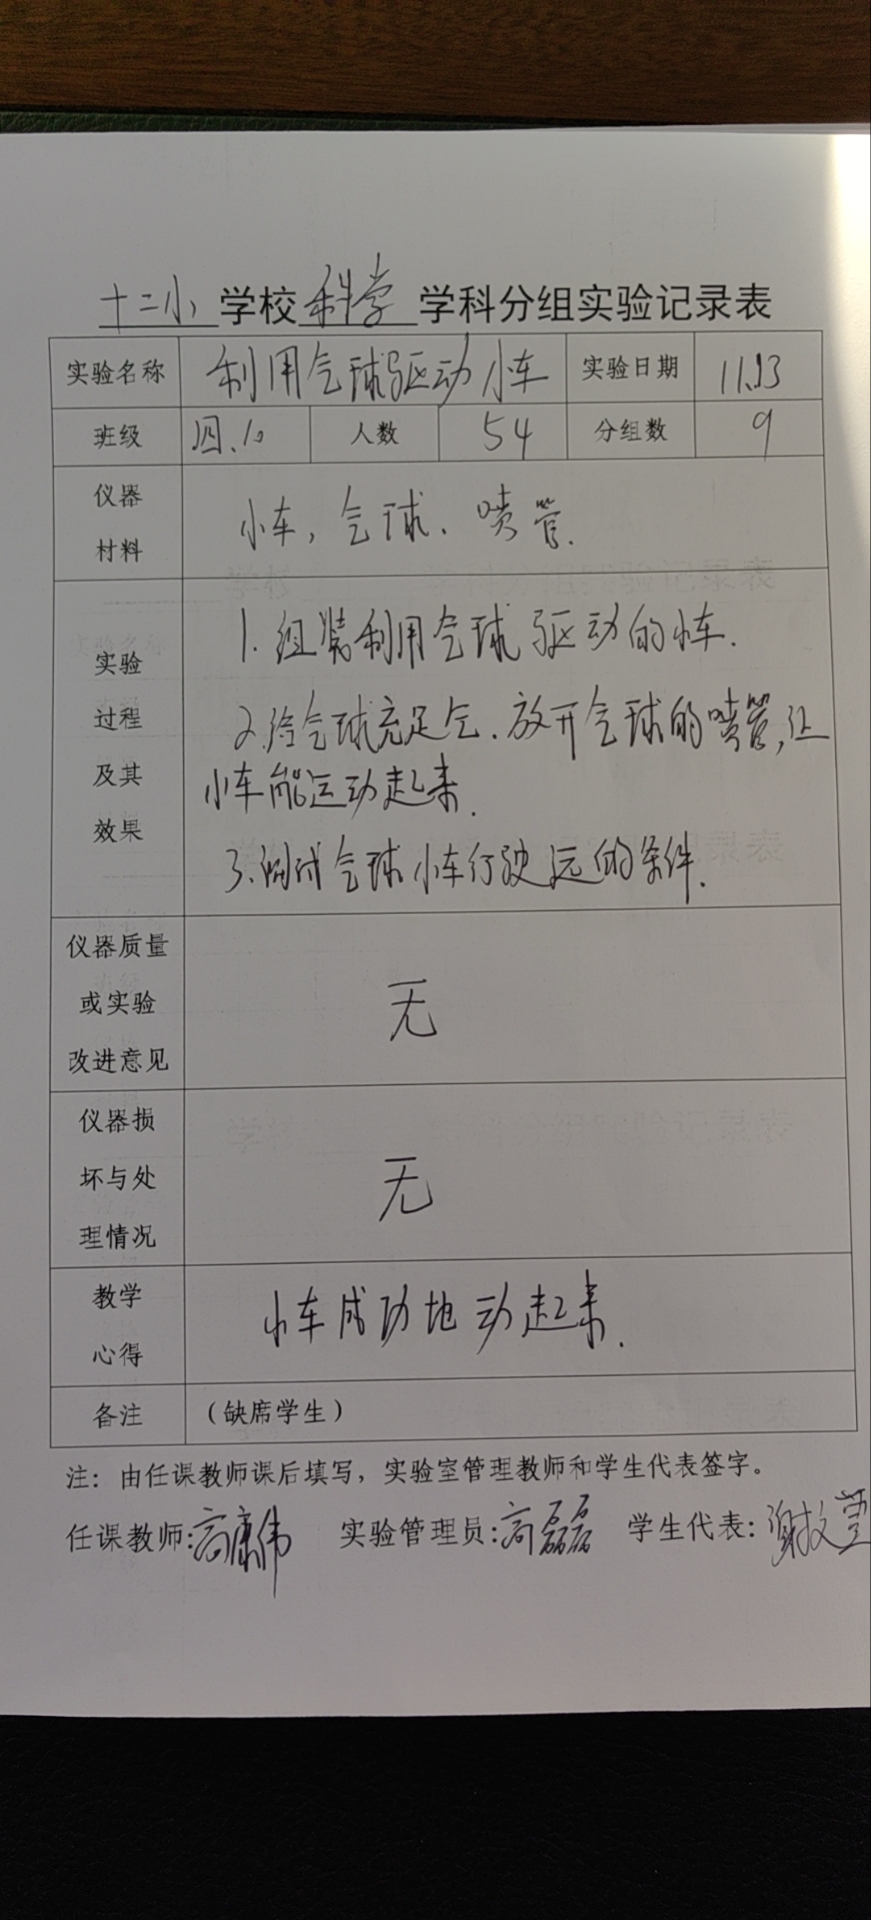 十二小学校科学学科分组实验记录表
实验名称 利用气球驱动小车 实验日期 11.13
班级 四.10 人数 54 分组数 9
仪器
材料
小车,气球.喷管.
实验
过程
及其
效果
1.组装利用气球驱动的小车.
2.给气球充足气.放开气球的喷管,让
小车能运动起来.
3.调试气球小车行驶远的条件.
仪器质量
或实验
改进意见
无
仪器损
坏与处
理情况
无
教学
心得
小车成功地动起来.
备注 (缺席学生)
注:由任课教师课后填写,实验室管理教师和学生代表签字。
任课教师:高康伟 实验管理员:高磊磊 学生代表:谢文萱